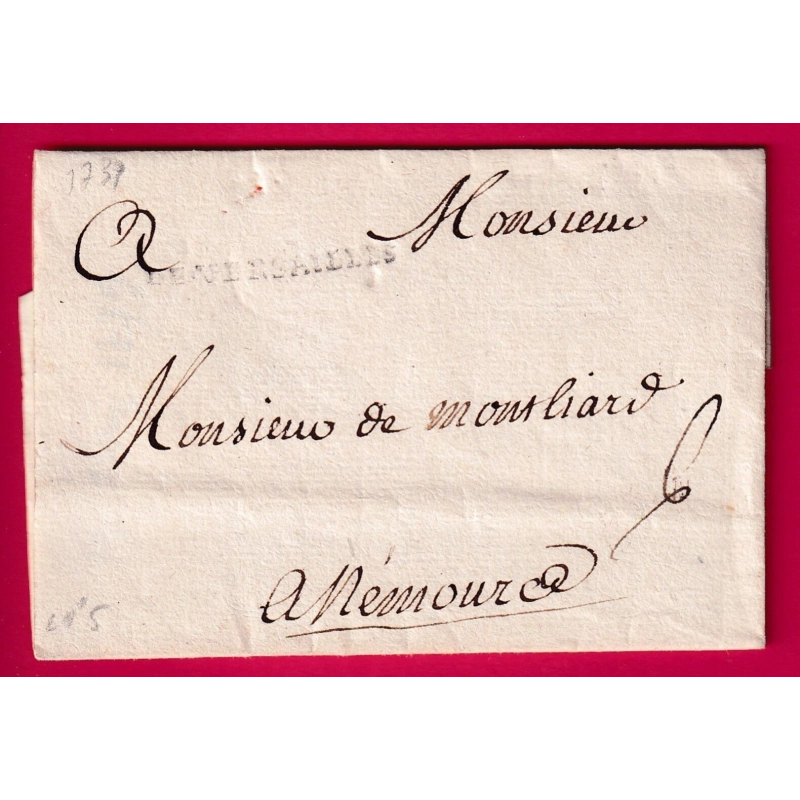 1739
A Monsieur
DE VERSAILLES
Monsieur de montliard
6
A Némours
n°5